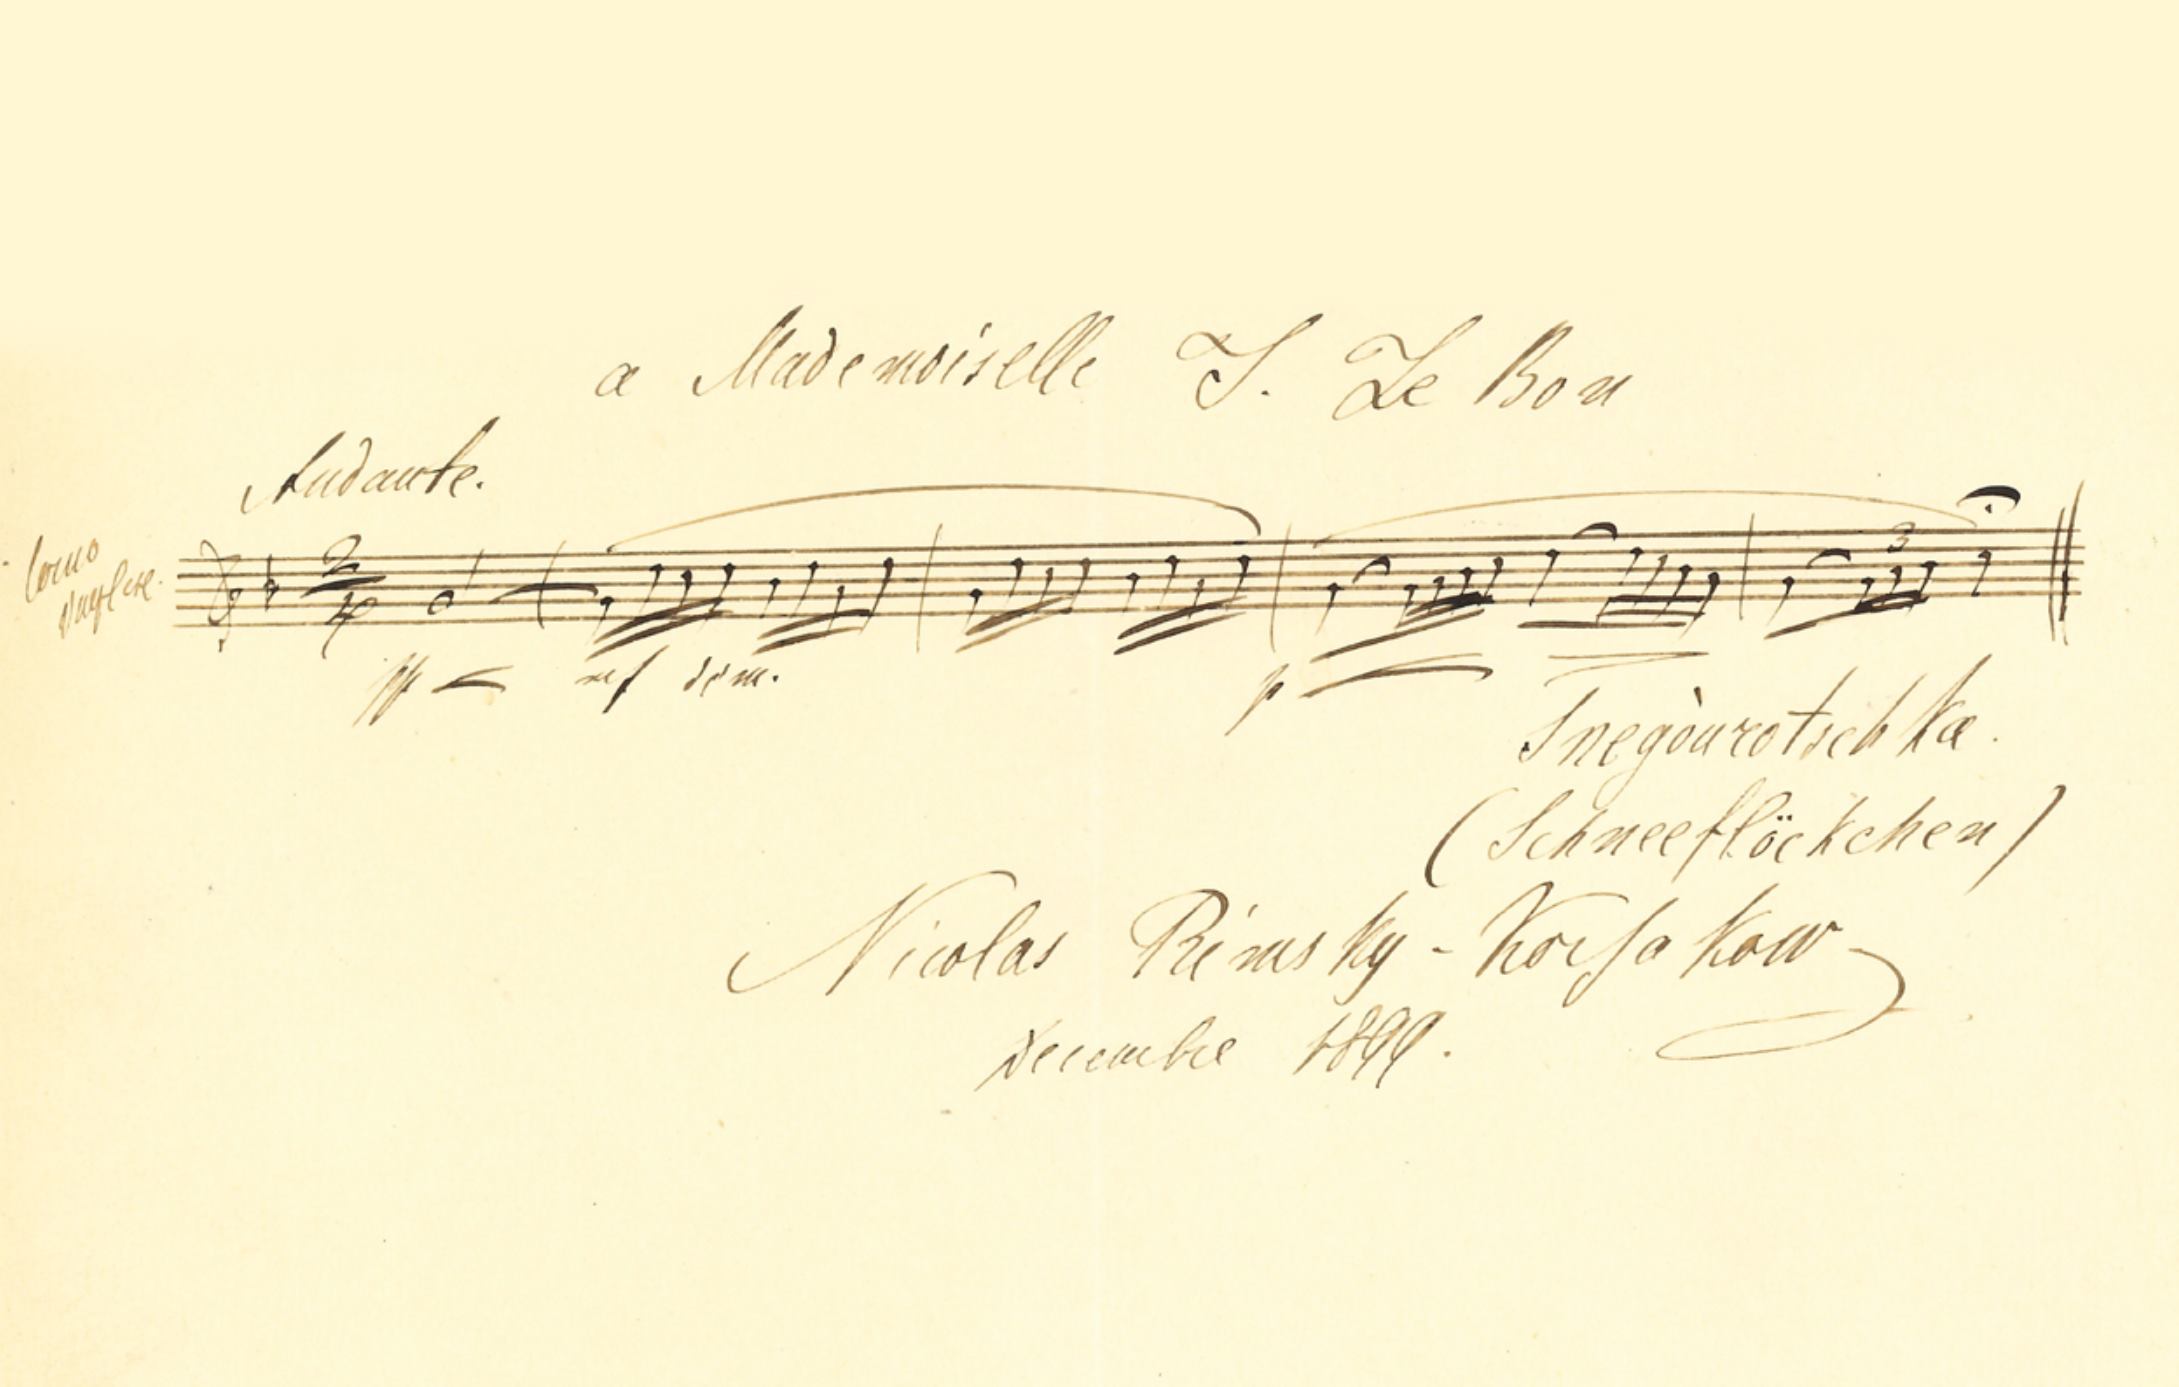 a Mademoiselle S. Le Bon
Andante.
Corno
inglese.
2
4
3
pp mf dim. p
Snegòurotschka.
(Schneeflöckchen)
Nicolas Rimsky-Korsakow
Decembre 1899.